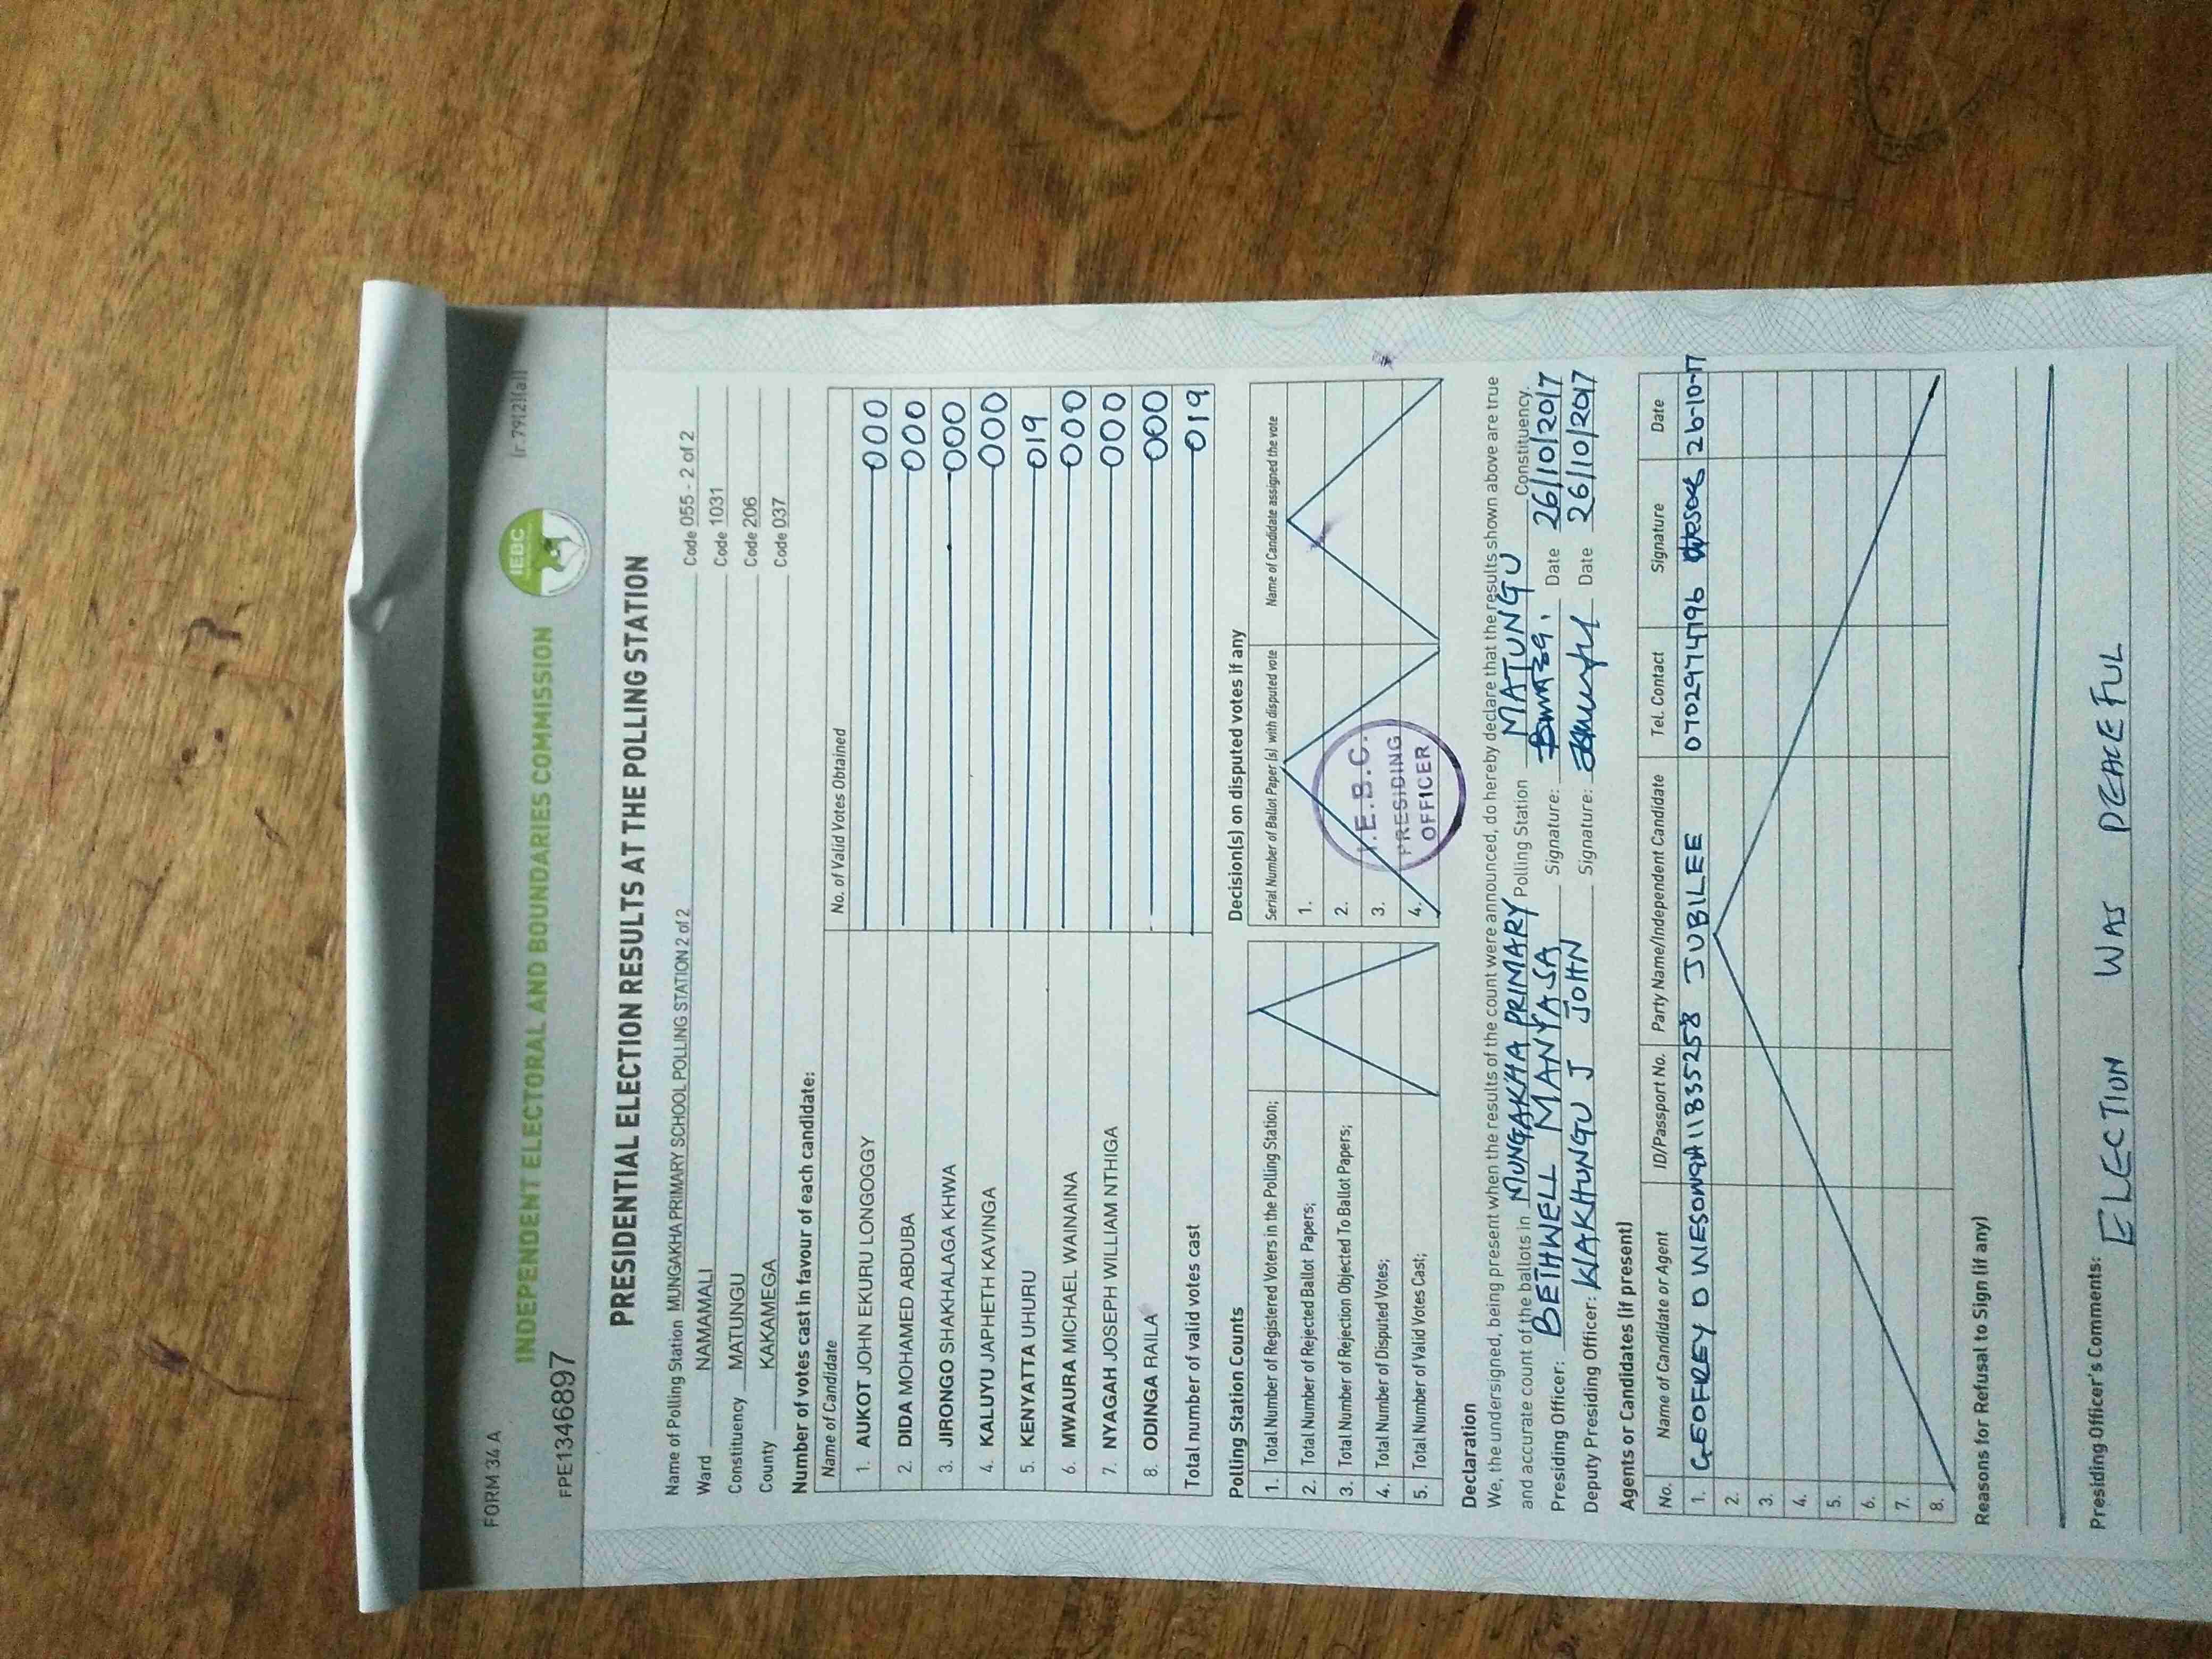 FORM 34 A
(r.79(2)(a))
INDEPENDENT ELECTORAL AND BOUNDARIES COMMISSION
IEBC
FPE1346897
PRESIDENTIAL ELECTION RESULTS AT THE POLLING STATION
Name of Polling Station MUNGAKHA PRIMARY SCHOOL POLLING STATION 2 of 2 Code 055 - 2 of 2
Ward NAMAMALI Code 1031
Constituency MATUNGU Code 206
County KAKAMEGA Code 037
Number of votes cast in favour of each candidate:
Name of Candidate No. of Valid Votes Obtained
1. AUKOT JOHN EKURU LONGOGGY 000
2. DIDA MOHAMED ABDUBA 000
3. JIRONGO SHAKHALAGA KHWA 000
4. KALUYU JAPHETH KAVINGA 000
5. KENYATTA UHURU 019
6. MWAURA MICHAEL WAINAINA 000
7. NYAGAH JOSEPH WILLIAM NTHIGA 000
8. ODINGA RAILA 000
Total number of valid votes cast 019
Polling Station Counts
1. Total Number of Registered Voters in the Polling Station;
2. Total Number of Rejected Ballot Papers;
3. Total Number of Rejection Objected To Ballot Papers;
4. Total Number of Disputed Votes;
5. Total Number of Valid Votes Cast;
Decision(s) on disputed votes if any
Serial Number of Ballot Paper (s) with disputed vote Name of Candidate assigned the vote
1.
2.
3.
4.
I.E.B.C.
PRESIDING
OFFICER
Declaration
We, the undersigned, being present when the results of the count were announced, do hereby declare that the results shown above are true
and accurate count of the ballots in MUNGAKHA PRIMARY Polling Station MATUNGU Constituency.
Presiding Officer: BETHWELL MANYASA Signature: Date 26/10/2017
Deputy Presiding Officer: WAKHUNGU J JOHN Signature: Date 26/10/2017
Agents or Candidates (if present)
No. Name of Candidate or Agent ID/Passport No. Party Name/Independent Candidate Tel. Contact Signature Date
1. GEOFREY O WESONGA 11835258 JUBILEE 0702974796 26-10-17
2.
3.
4.
5.
6.
7.
8.
Reasons for Refusal to Sign (if any)
Presiding Officer's Comments:
ELECTION WAS PEACEFUL